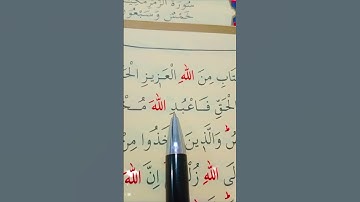 سُورَةُ الزُّمَرِ مَكِّيَّ
خَمْسٌ وَسَبْعُو
تَابِ مِنَ اللّٰهِ الْعَزِيزِ الْحَ
الْحَقِّ فَاعْبُدِ اللّٰهَ مُخْ
صُ وَالَّذِينَ خَذُوا مِنْ
لَى اللّٰهِ زُلْ اِنَّ اللّٰهَ